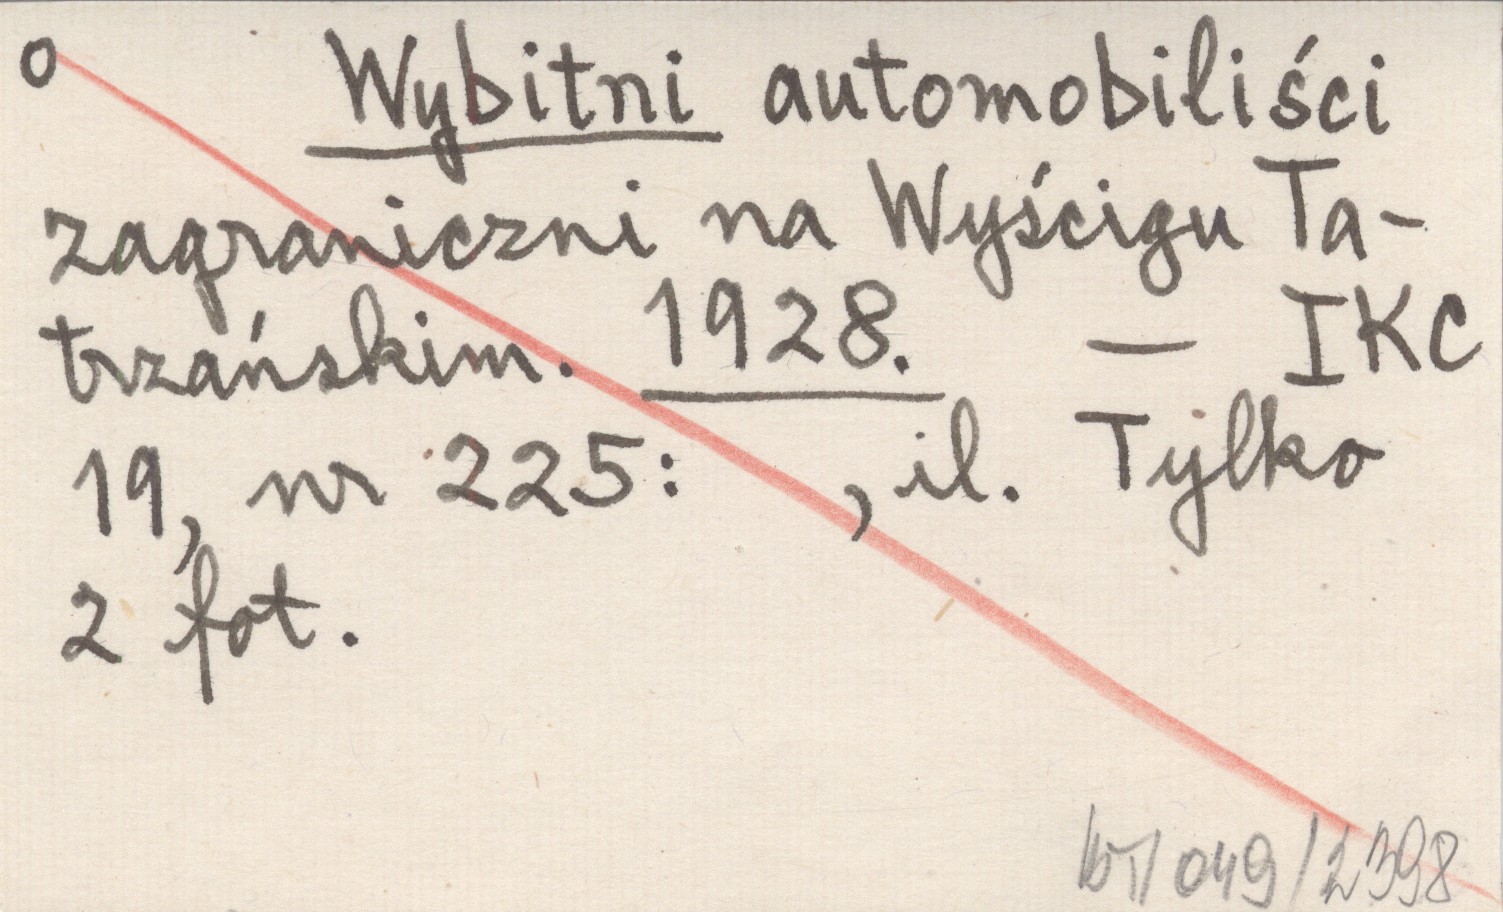 o Wybitni automobiliści
zagraniczni na Wyścigu Ta-
trzańskim. 1928. — IKC
19, nr 225: , il. Tylko
2 fot.
049/2398